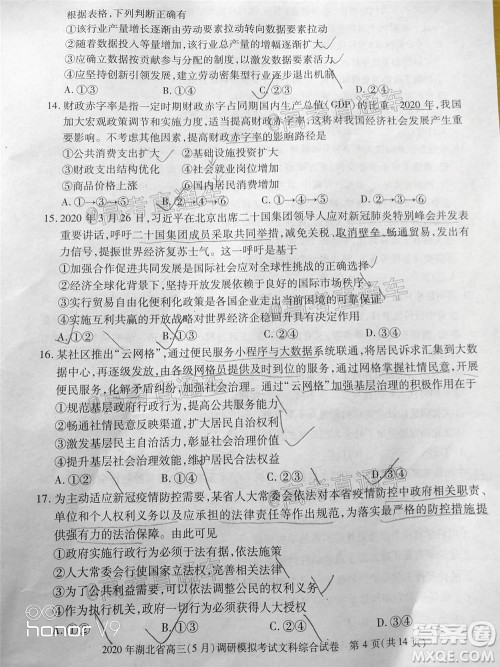 根据表格，下列判断正确有
①该行业产量增长逐渐由劳动要素拉动转向数据要素拉动
②随着数据投入等量增加，该行业总产量的增长幅度逐渐扩大
③应确立数据按贡献参与分配的制度，以激发数据要素活力
④应坚持创新引领发展，建立劳动密集型行业逐步退出机制
A.①③ B.①④ C.②③ D.②④
14.财政赤字率是指一定时期财政赤字占同期国内生产总值（GDP）的比重。2020年，我国
加大宏观政策调节和实施力度，适当提高财政赤字率，这将对我国经济社会发展产生重要
影响。不考虑其他因素，提高财政赤字率的影响路径是
①公共消费支出扩大 ②基础设施投资扩大
③财政支出结构优化 ④社会总需求扩大
⑤商品价格上涨 ⑥国内居民消费增加
A.①→③→⑤ B.①→④→⑥ C.②→③→⑤ D.②→④→⑥
15.2020年3月26日，习近平在北京出席二十国集团领导人应对新冠肺炎特别峰会并发表
重要讲话，呼吁二十国集团成员采取共同举措，减免关税、取消壁垒、畅通贸易，发出有
力信号，提振世界经济复苏士气。这一呼吁是基于
①加强合作促进共同发展是国际社会应对全球性挑战的正确选择
②经济全球化背景下，坚持国内发展优先可以确保经济健康发展
③实行贸易自由化和便利化政策是各国企业走出去的可靠保证
④实施互利共赢的开放战略对世界经济企稳回升具有重大影响
A.①③ B.①④ C.②③ D.②④
16.某社区推出“云网格”，通过便民服务小程序与大数据系统联通，将居民诉求汇集到大数
据中心，再逐级发放，由各级网格员提供及时到位的服务；政府通过大数据网格掌握社情民意，
优化服务，化解矛盾纠纷，加强社会治理。“云网格”加强基层治理的积极作用在于
①规范基层政府行政行为，提高公共服务能力
②畅通社情民意反映渠道，扩大居民自治权利
③激发基层自治活力，彰显社会治理价值
④创新社会治理方式，提升社会治理效能
A.①② B.①③ C.②④ D.③④
17.为主动适应新冠疫情防控需要，某省人大常委会依法对本省疫情防控中政府相关职责、
单位和个人权利义务以及应承担的法律责任等作出规定，为实施最严格的防控措施提
供强有力的法治保障。由此可见
①政府实施行政行为必须于法有据、依法行政
②人大常委会行使国家立法权，完善相关法律
③为了公共利益需要，可依法调整公民的权利义务
④政府实施行政行为，必须人大常委会依法授权
A.①③ B.①④ C.②③ D.②④
2020年湖北省高三（5月）调研模拟考试文科综合试卷 第4页（共14页）
honor V9